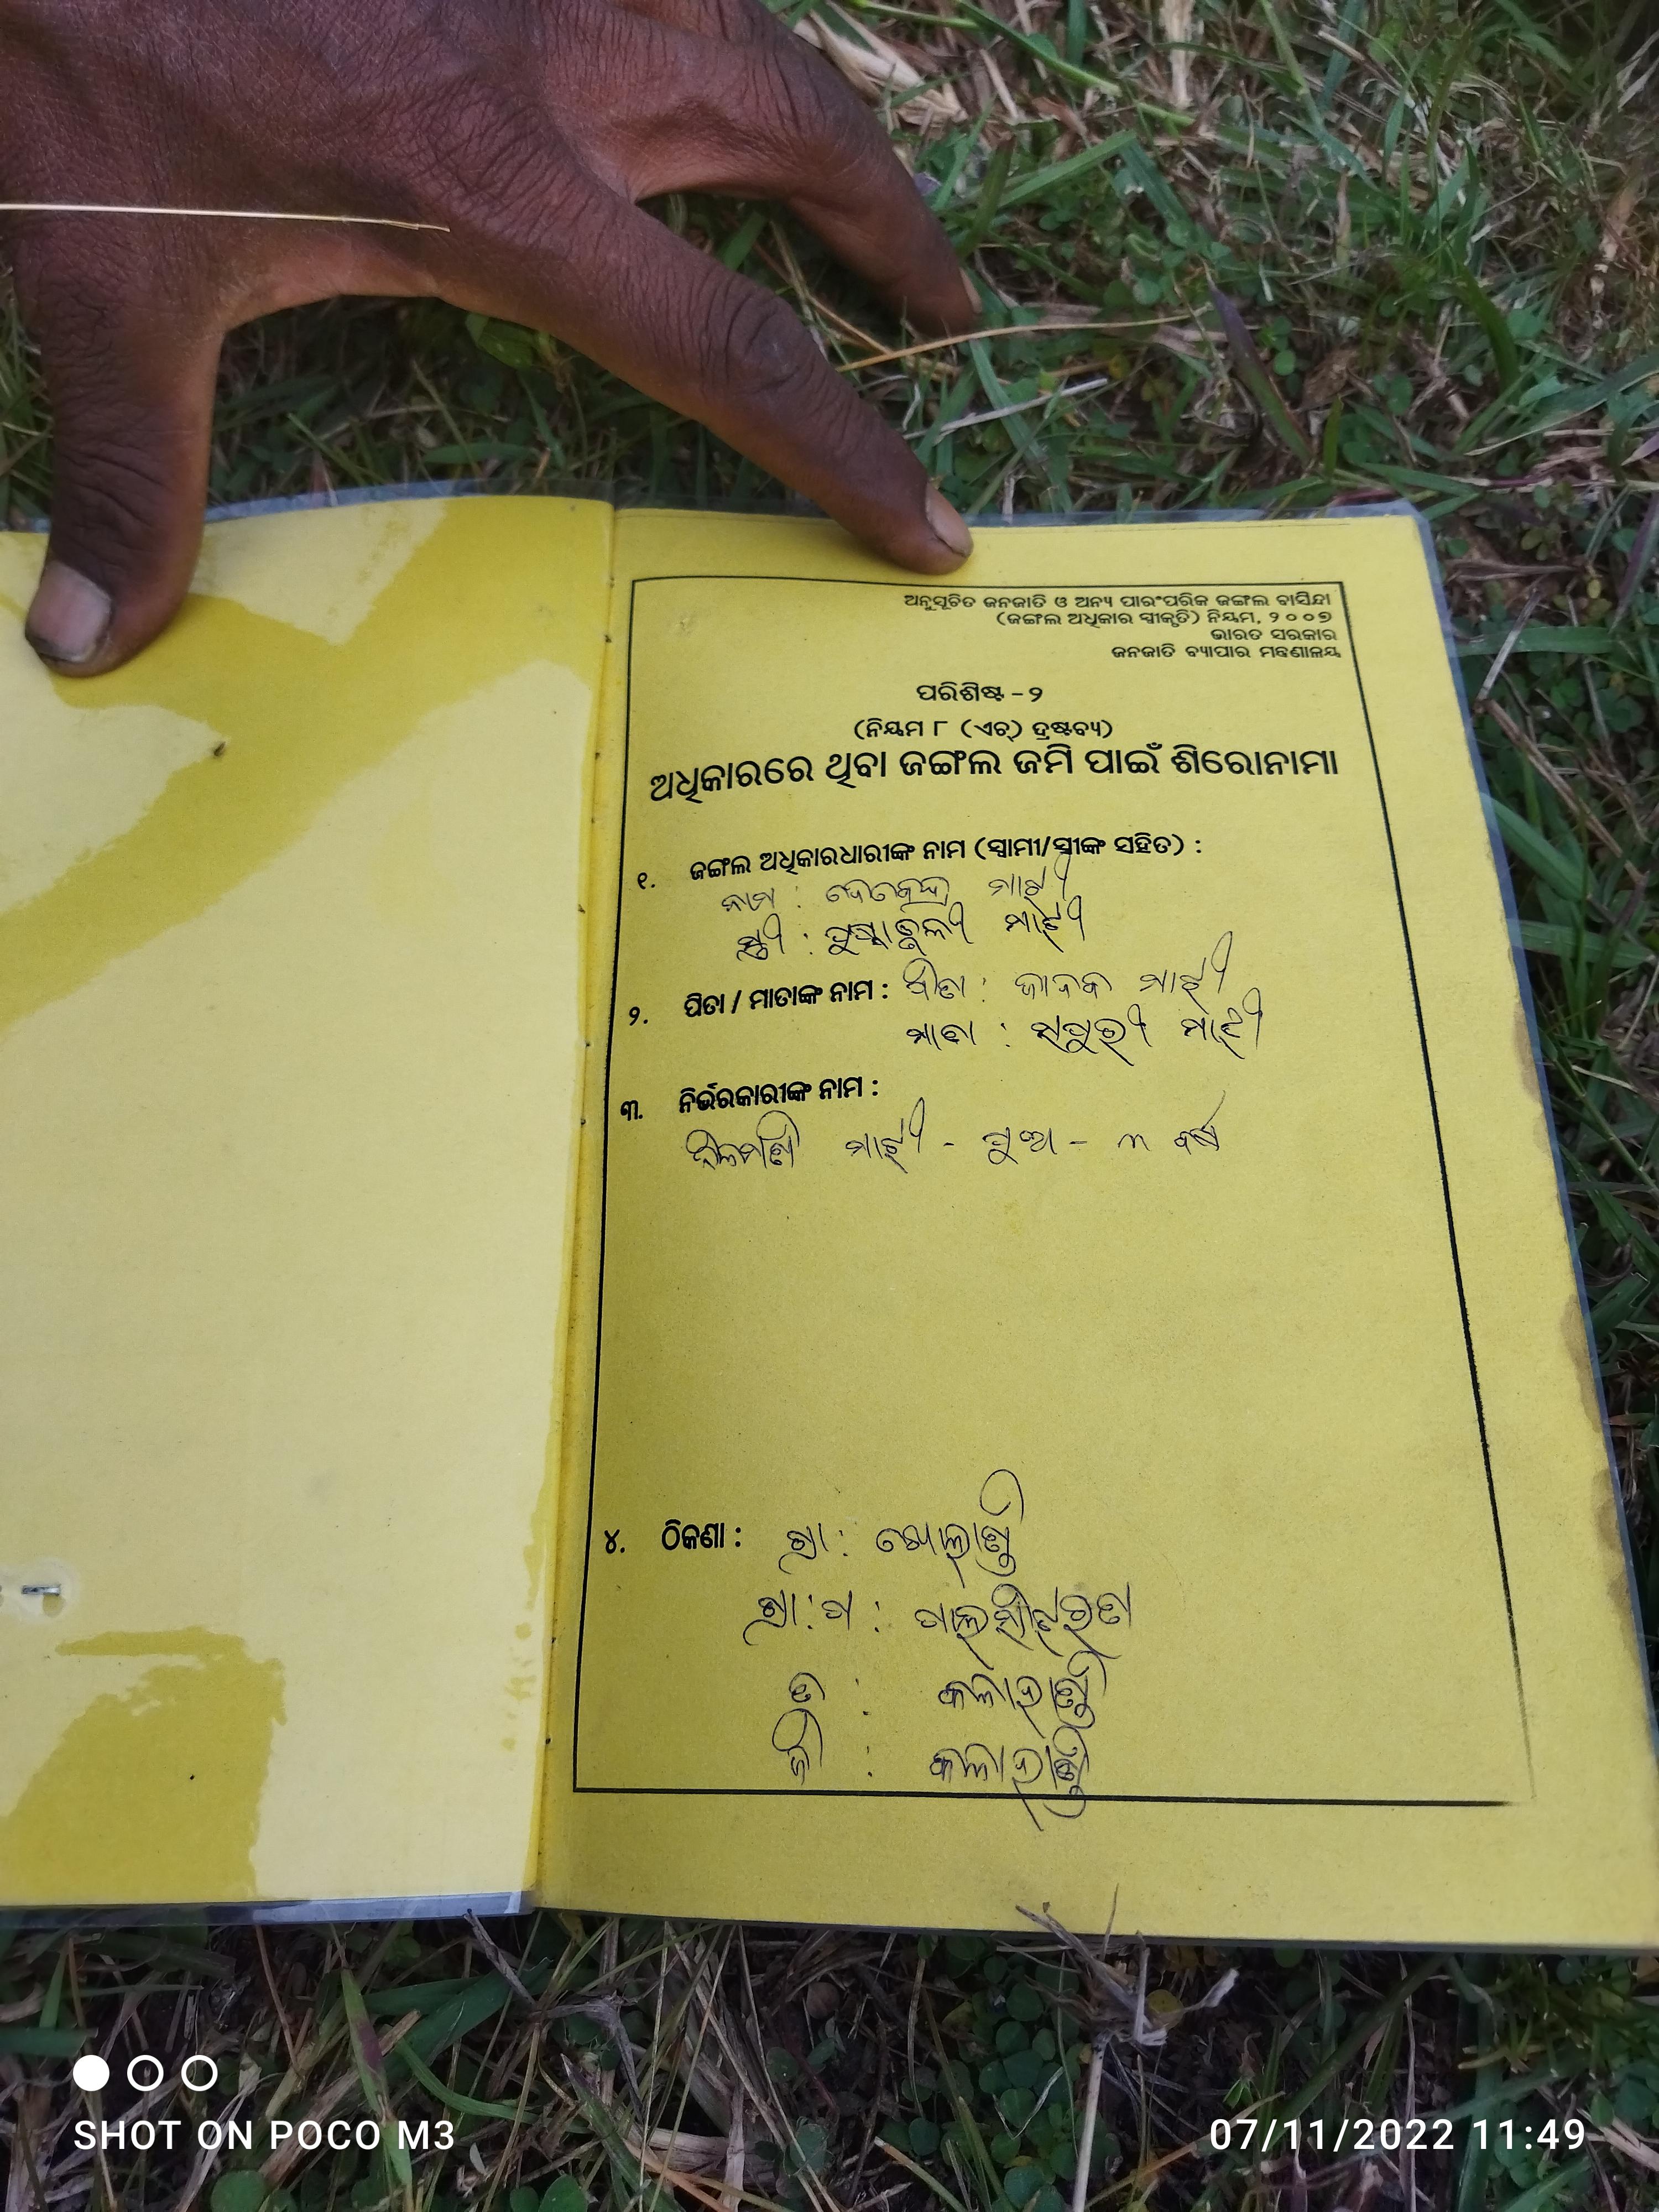 ଅନୁସୂଚିତ ଜନଜାତି ଓ ଅନ୍ୟ ପାରଂପରିକ ଜଙ୍ଗଲ ବାସିନ୍ଦା
(ଜଙ୍ଗଲ ଅଧିକାର ସ୍ୱୀକୃତି) ନିୟମ, ୨୦୦୭
ଭାରତ ସରକାର
ଜନଜାତି ବ୍ୟାପାର ମନ୍ତ୍ରଣାଳୟ
ପରିଶିଷ୍ଟ - ୨
(ନିୟମ ୮ (ଏଚ୍) ଦ୍ରଷ୍ଟବ୍ୟ)
ଅଧିକାରରେ ଥିବା ଜଙ୍ଗଲ ଜମି ପାଇଁ ଶିରୋନାମା
୧. ଜଙ୍ଗଲ ଅଧିକାରଧାରୀଙ୍କ ନାମ (ସ୍ୱାମୀ/ସ୍ତ୍ରୀଙ୍କ ସହିତ) :
ନାମ : ମାଝୀ
ସ୍ତ୍ରୀ : ମାଝୀ
୨. ପିତା / ମାତାଙ୍କ ନାମ : ପିତା : ଜାଦବ ମାଝୀ
ମାତା : ମାଝୀ
୩. ନିର୍ଭରକାରୀଙ୍କ ନାମ :
ନୀଳମଣି ମାଝୀ - ପୁଅ - ୩ ବର୍ଷ
୪. ଠିକଣା : ଗ୍ରା :
ଗ୍ରା : ପ :
ତ : କଳାହାଣ୍ଡି
ଜି : କଳାହାଣ୍ଡି
SHOT ON POCO M3
07/11/2022 11:49